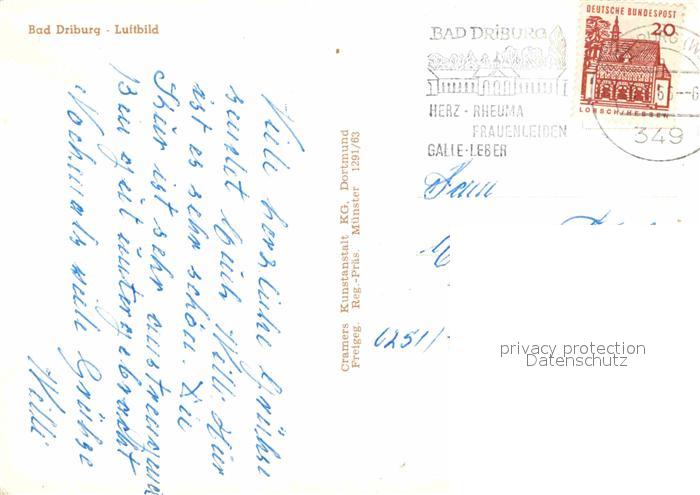 Bad Driburg - Luftbild
BAD DRIBURG
HERZ - RHEUMA
FRAUENLEIDEN
GALLE - LEBER
DEUTSCHE BUNDESPOST
20
LORSCH/HESSEN
349
Viele herzliche Grüße
sendet Euch Willi. Hier
ist es sehr schön. Die
Kur ist sehr anstrengend
Bin gut untergebracht
Nochmals viele Grüße
Willi
Cramers Kunstanstalt KG, Dortmund
Freigeg. Reg.-Präs. Münster 1291/63
Fam
6251/
privacy protection
Datenschutz